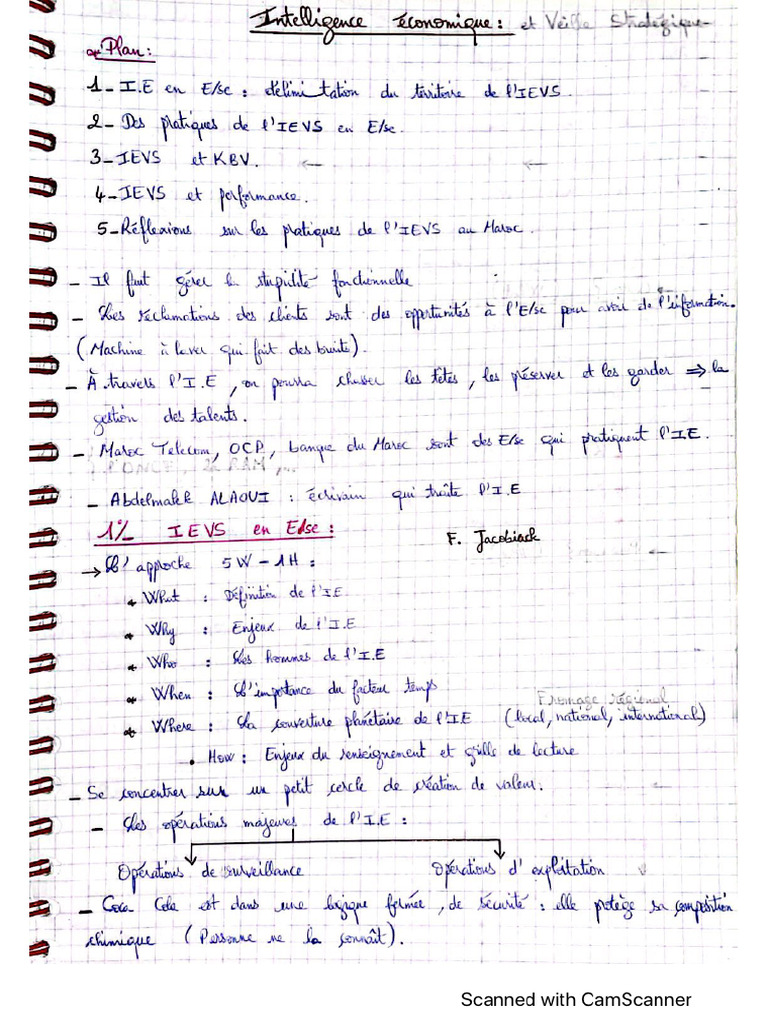 Intelligence économique : et Veille Stratégique
Plan :
1- I.E en E/se : délimitation du térritoire de l'IEVS
2- Des pratiques de l'IEVS en E/se.
3- IEVS et KBV.
4- IEVS et performance.
5- Réflexions sur les pratiques de l'IEVS au Maroc.
- Il faut gérer la stupidité fonctionnelle
- Les réclamations des clients sont des opportunités à l'E/se pour avoir de l'information.
(Machine à laver qui fait des bruits).
- À travers l'I.E, on pourra chasser les têtes, les préserver et les garder ⇒ la
gestion des talents.
- Maroc Telecom, OCP, banque du Maroc sont des E/se qui pratiquent l'I.E.
l'ONCF, la RAM, ...
- Abdelmalek ALAOUI : écrivain qui traite l'I.E
1°/ IEVS en E/se :
F. Jacobiack
→ L'approche 5W-1H :
* What : Définition de l'IE
* Why : Enjeux de l'I.E
* Who : Les hommes de l'I.E
* When : L'importance du facteur temps
Fromage régional
* Where : La couverture planétaire de l'IE (local, national, international)
• How : Enjeux du renseignement et grille de lecture
- Se concentrer sur un petit cercle de création de valeur.
- Les opérations majeures de l'I.E :
Opérations de surveillance Opérations d'exploitation
- Coca Cola est dans une logique fermée, de sécurité : elle protège sa composition
chimique (Personne ne la connaît).
Scanned with CamScanner